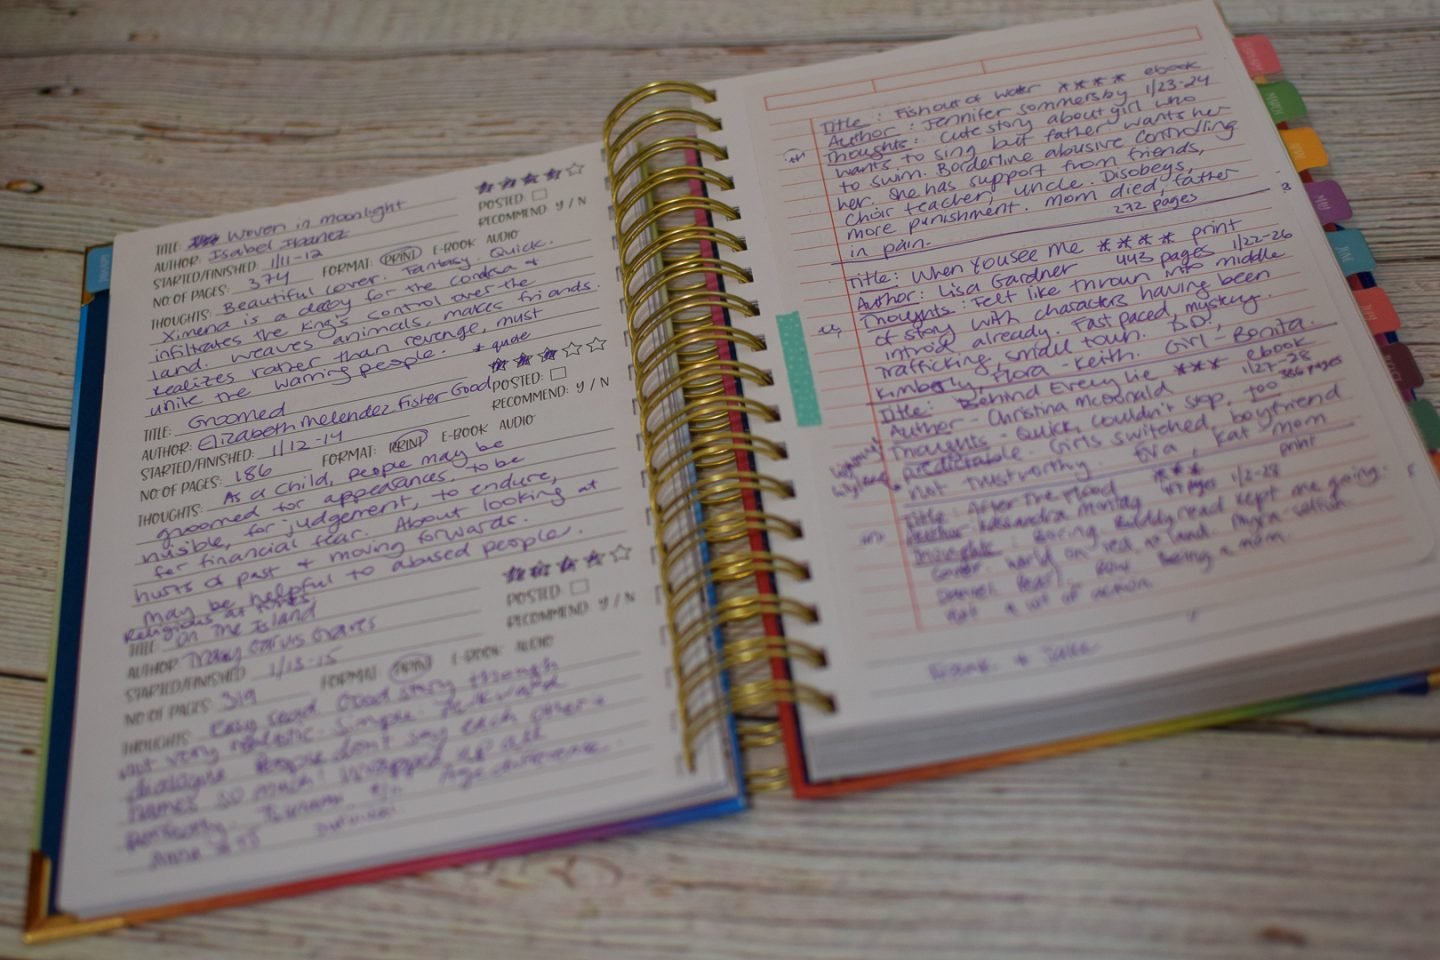 TITLE: Woven in Moonlight
AUTHOR: Isabel Ibanez
POSTED:
STARTED/FINISHED: 1/11-12
RECOMMEND: Y / N
NO. OF PAGES: 374 FORMAT: PRINT E-BOOK AUDIO
THOUGHTS: Beautiful cover. Fantasy. Quick.
Ximena is a decoy for the condesa +
infiltrates the King's control over the
land. weaves animals, makes friends.
realizes rather than revenge, must
unite the warring people. * quote
TITLE: Groomed
AUTHOR: Elizabeth Melendez Fisher Good
POSTED:
STARTED/FINISHED: 1/12-14
RECOMMEND: Y / N
NO. OF PAGES: 186 FORMAT: PRINT E-BOOK AUDIO
THOUGHTS: As a child, people may be
groomed for appearances, to be
invisible, for judgement, to endure,
for financial fear. About looking at
hurts of past + moving forwards.
may be helpful to abused people.
Religious at times.
TITLE: On The Island
AUTHOR: Tracy Garvis Graves
POSTED:
STARTED/FINISHED: 1/13-15
RECOMMEND: Y / N
NO OF PAGES: 319 FORMAT: PRINT E-BOOK AUDIO
THOUGHTS: Easy read. Good story though
not very realistic. Simple. Awkward
dialogue. People don't say each other's
names so much! Wrapped up all
perfectly. Tsunami. Age difference.
Anna + TJ survival.
Title: Fish out of water **** ebook
Author: Jennifer Sommersby 1/23-24
Thoughts: Cute story about girl who
wants to sing but father wants her
to swim. Borderline abusive controlling
her. She has support from friends,
choir teacher, uncle. Disobeys,
more punishment. Mom died, father
in pain. 272 pages
Title: When You See Me **** print
Author: Lisa Gardner 443 pages 1/22-26
Thoughts: Felt like thrown into middle
of story with characters having been
intro'd already. Fast paced, mystery.
trafficking, small town. D.D.,
Kimberly, Flora - Keith. Girl - Bonita.
Title: Behind Every Lie *** ebook
Author - Christina McDonald 1/27-28
386 pages
Thoughts - Quick, couldn't stop. too
predictable. Girls switched, boyfriend
not trustworthy. Eva, Kat mom
Title: After The Flood *** print
Author: Kassandra Montag 417 pages 1/2-28
Thoughts: Boring. Buddy read kept me going.
Pearl. Row. Being a mom.
Not a lot of action.
JUNE